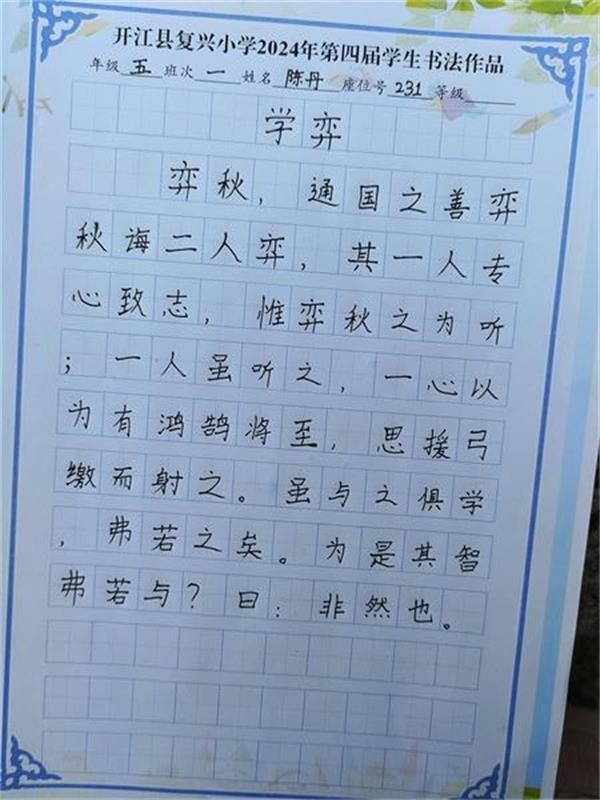 开江县复兴小学2024年第四届学生书法作品
年级 五 班次 一 姓名 陈丹 座位号 231 等级
学弈
弈秋，通国之善弈
秋诲二人弈，其一人专
心致志，惟弈秋之为听
；一人虽听之，一心以
为有鸿鹄将至，思援弓
缴而射之。虽与之俱学
，弗若之矣。为是其智
弗若与？曰：非然也。